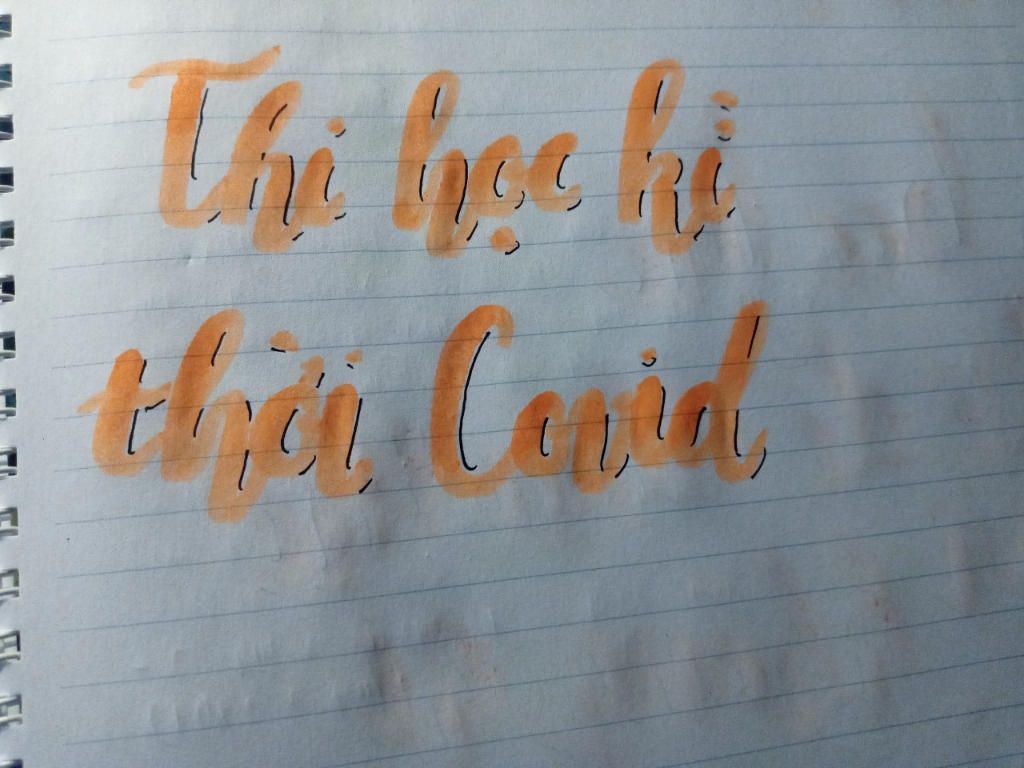 Thi học kì
thời Covid